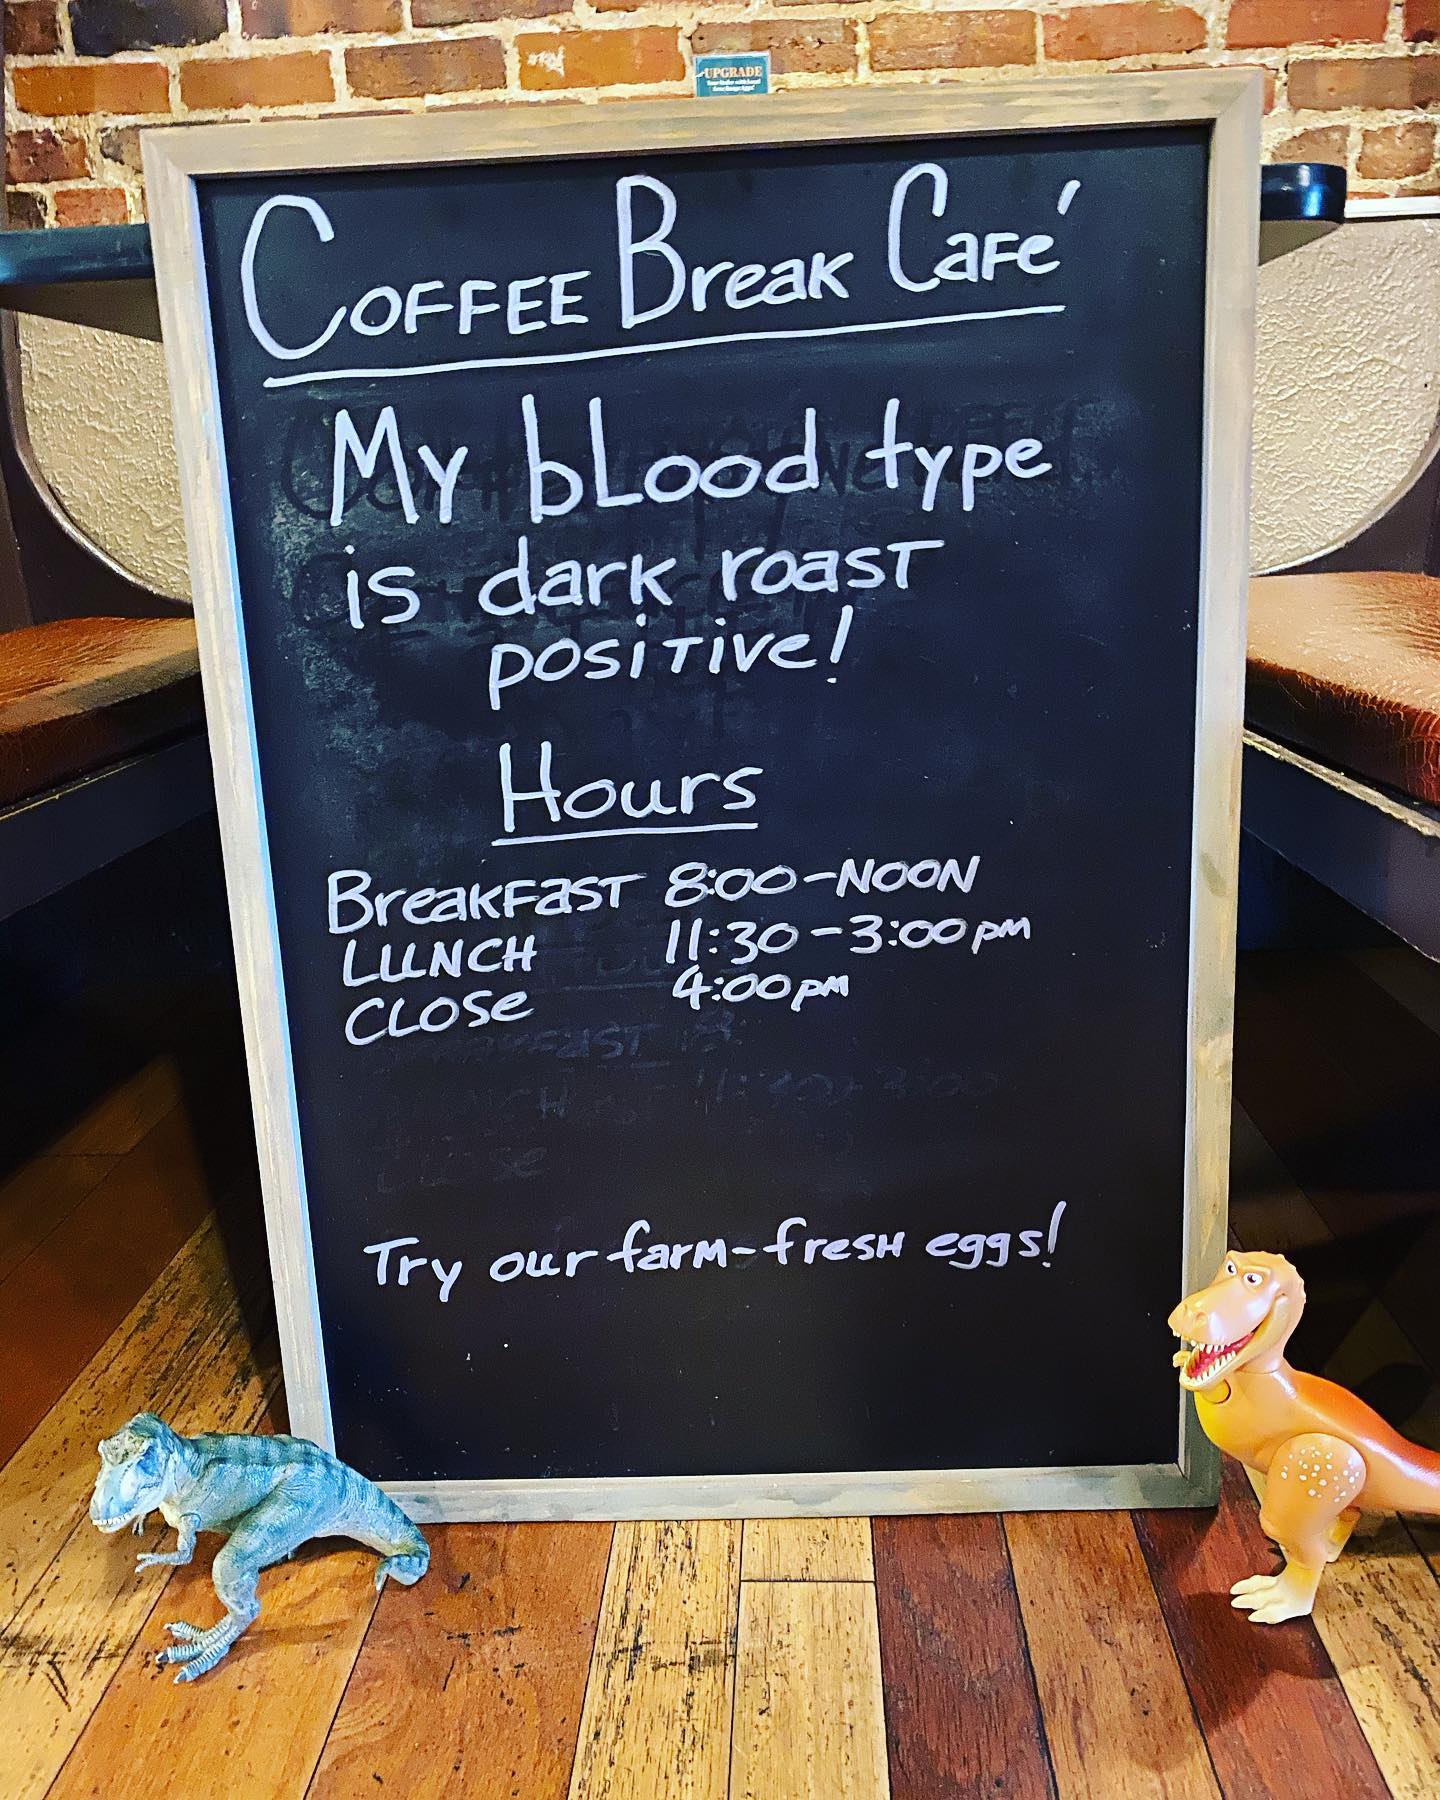 UPGRADE
Coffee Break Café
My blood type
is dark roast
positive!
Hours
Breakfast 8:00-NOON
LUNCH 11:30-3:00pm
CLOSE 4:00pm
Try our farm-fresh eggs!